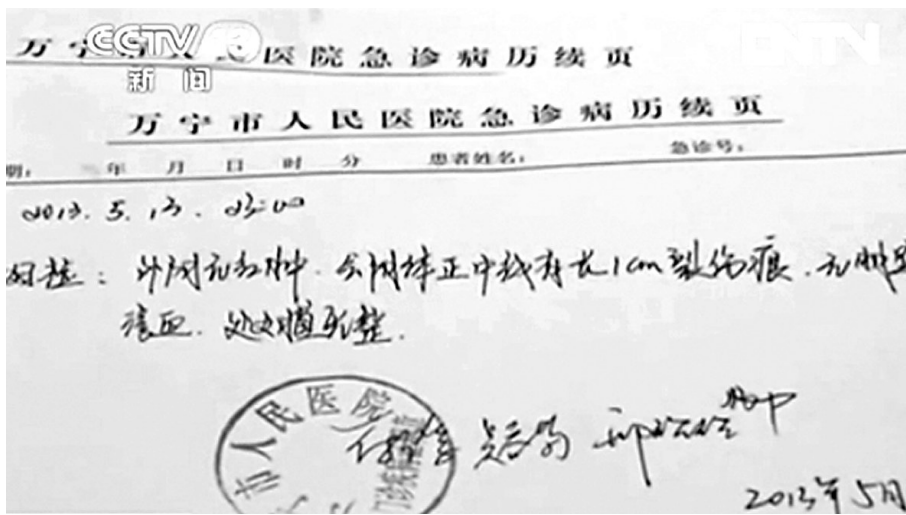 CCTV 13 CNTV
新闻
万宁 民医院急诊病历续页
万宁市人民医院急诊病历续页
期: 年 月 日 时 分 患者姓名: 急诊号:
2013. 5. 13. 23:00
检: 外阴无红肿. 会阴体正中线有长1cm裂伤痕. 无明显
渗血. 处女膜完整.
市人民医院
2013年5月